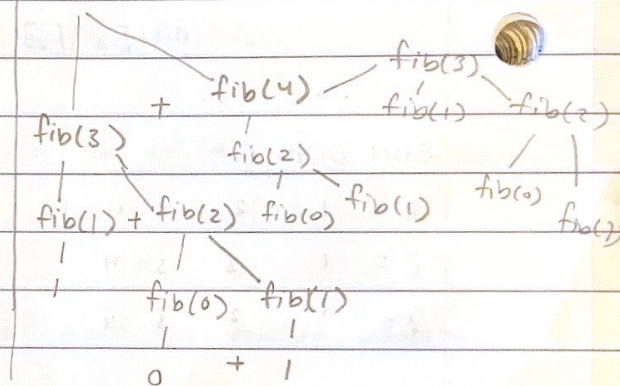 fib(3)
+ fib(4) fib(1) fib(2)
fib(3) fib(2)
fib(1) + fib(2) fib(0) fib(1) fib(0)
1 fib(0) fib(1)
0 + 1